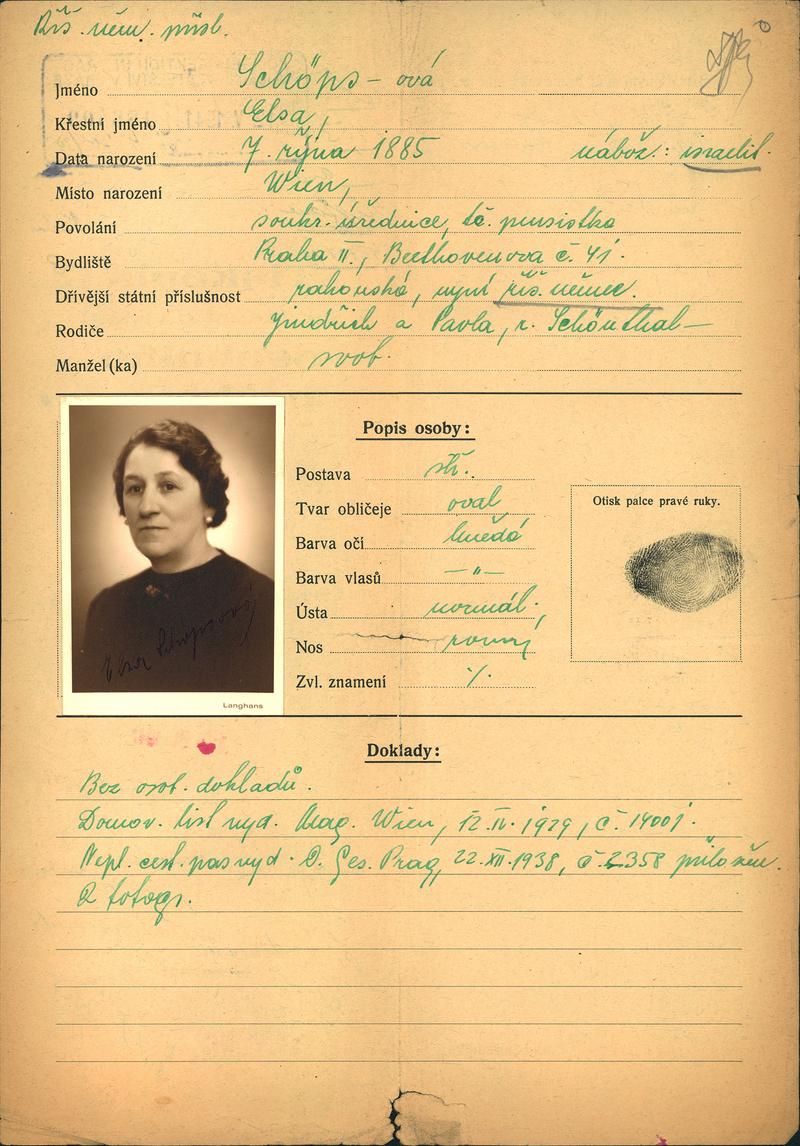 Říš. něm. přísl.
Jméno Schöps-ová
Křestní jméno Elsa,
Data narození 7. října 1885 nábož.: israelit.
Místo narození Wien,
Povolání soukr. úřednice, tč. pensistka
Bydliště Praha II., Beethovenova č. 41.
Dřívější státní příslušnost rakouská, nyní říš. německ.
Rodiče Jindřich a Pavla, r. Schönthal-
Manžel (ka) svob.
Popis osoby:
Postava stř.
Tvar obličeje oval
Barva očí hnědá
Barva vlasů —"—
Ústa normál.,
Nos rovný
Zvl. znamení ·/.
Otisk palce pravé ruky.
Elsa Schöpsová
Langhans
Doklady:
Bez osob. dokladů.
Domov. list vyd. Mag. Wien, 12.IV.1929, č. 14001.
Nepl. cest. pas vyd. D. Ges. Prag, 22.XII.1938, č. 2358 přiložen.
2 fotogr.